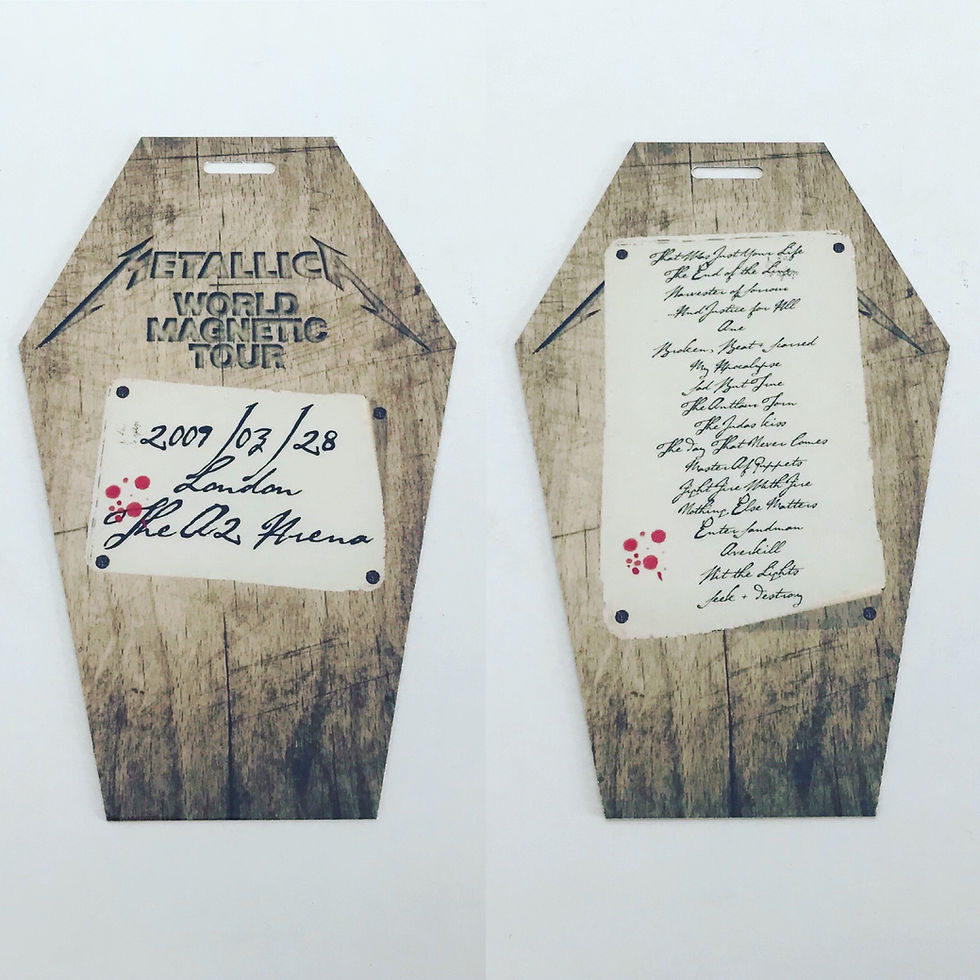 METALLICA
WORLD
MAGNETIC
TOUR
2009/03/28
London
The O2 Arena
That Was Just Your Life
The End of the Line
Harvester of Sorrow
...And Justice for All
One
Broken, Beat + Scarred
My Apocalypse
Sad But True
The Outlaw Torn
The Judas Kiss
The Day That Never Comes
Master Of Puppets
Fight Fire With Fire
Nothing Else Matters
Enter Sandman
Overkill
Hit the Lights
Seek + Destroy